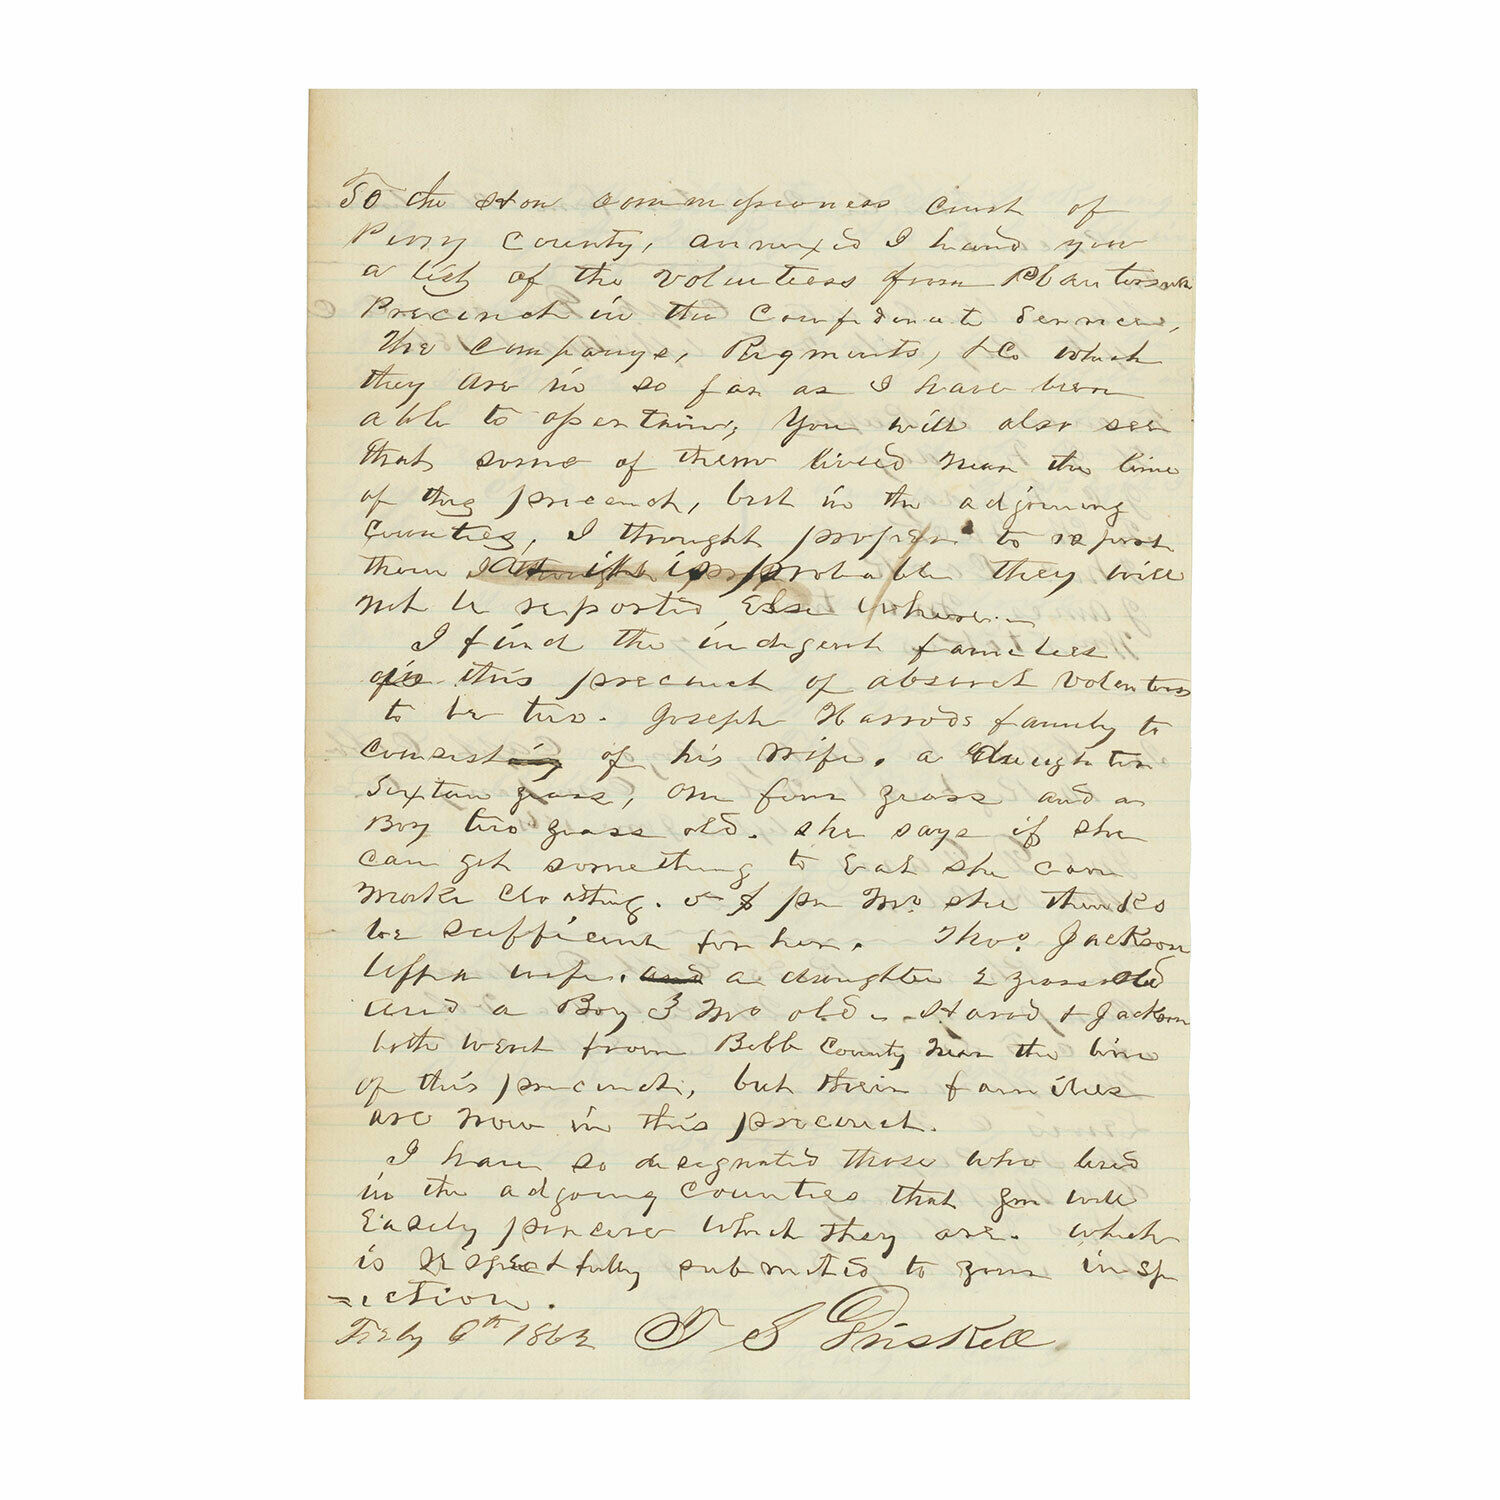 To the Hon commissioners Court of
Perry County, annexed I hand you
a list of the volunteers from Plantersville
Precinct in the Confederate Service,
The Companys, Regments, & Co which
they are in so far as I have been
able to assertain; You will also see
that some of them lived near the line
of this precinct, but in the adjoining
Counties, I thought proper to report
them as it is probable they will
not be reported Else where.
I find the indigent families
in this precinct of absent Volenters
to be two. Joseph Harrods family to
consist of his wife. a daughter
Sixteen years, one four years and a
Boy two years old. she says if she
can get something to Eat she can
make cloathing. 5 $ per Mo. she thinks
be sufficient for her. Thos. Jackson
left a wife. a daughter 2 years old
and a Boy 3 Mo old. Harod & Jackson
both went from Bibb County near the line
of this precinct, but their families
are now in this precinct.
I have so designated those who lived
in the adgoing Counties that you will
Easely perceive which they are. which
is respectfully submitted to your insp
=ection.
Feby 6th 1862 T S Driskell